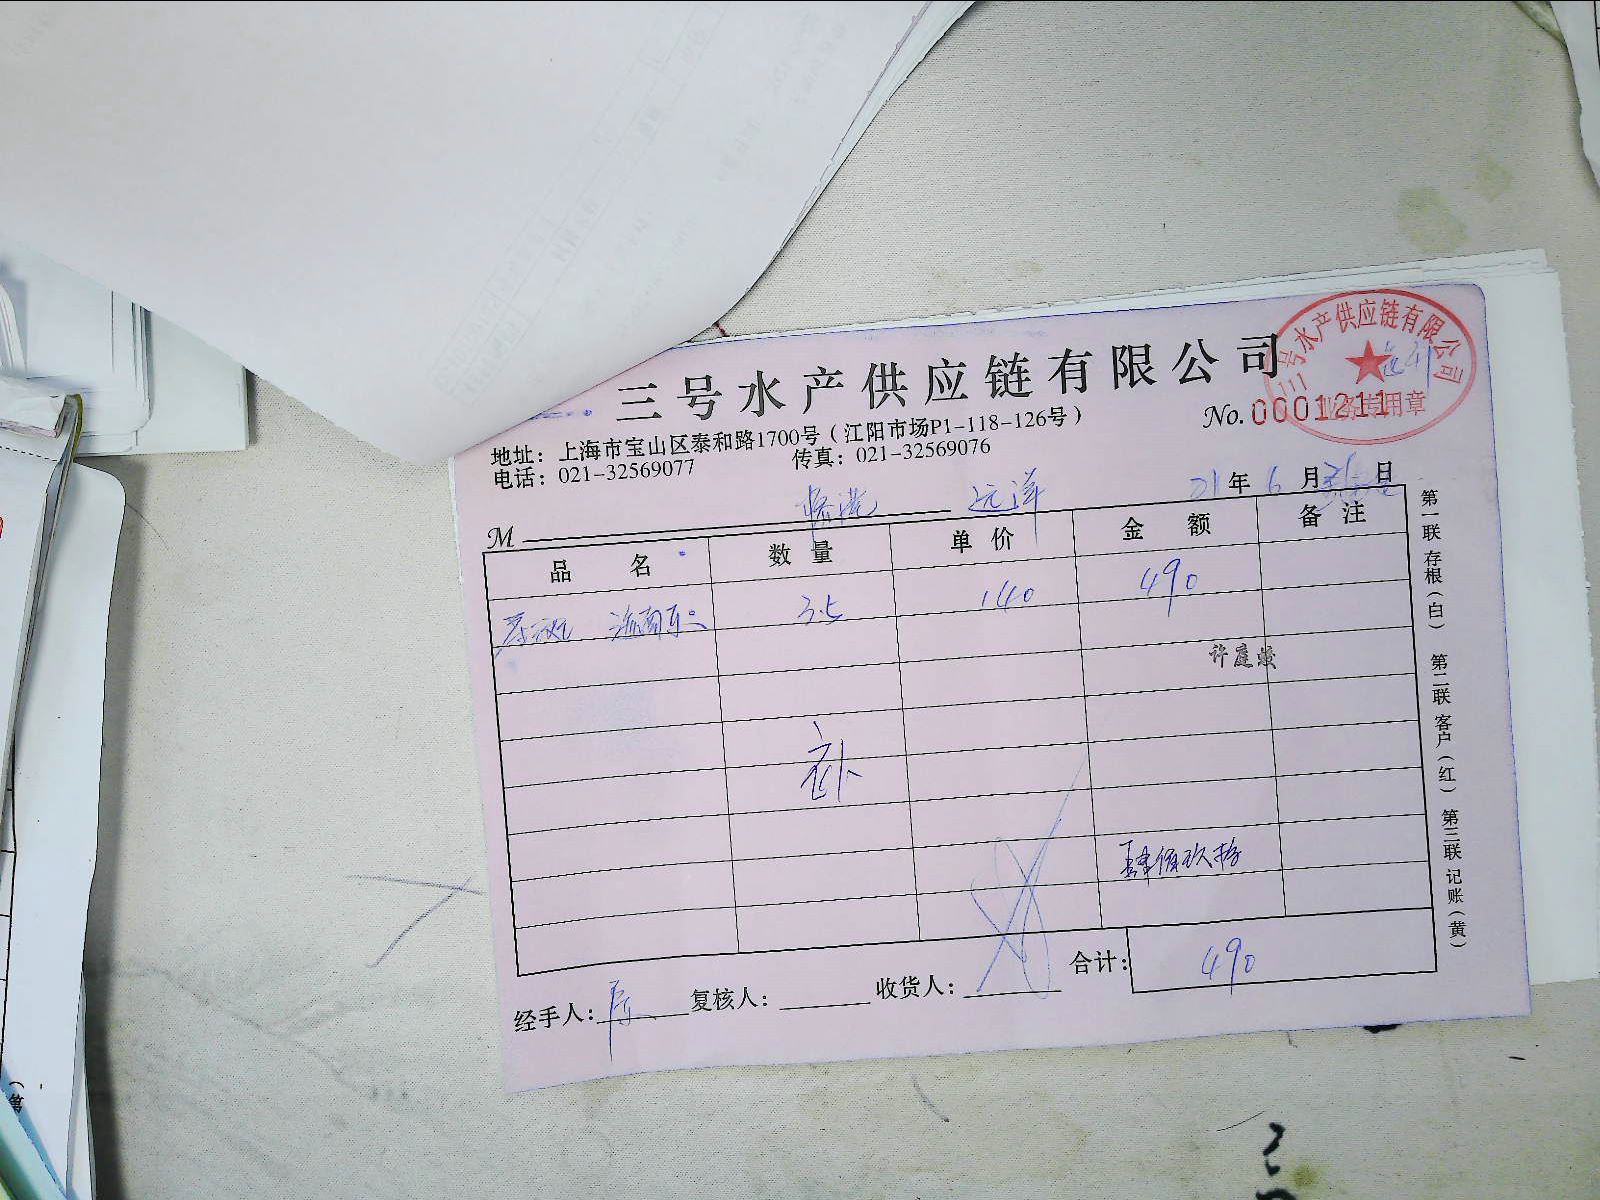 三号水产供应链有限公司
三号水产供应链有限公司
业务专用章
No. 0001211
地址：上海市宝山区泰和路1700号（江阳市场P1-118-126号）
电话：021-32569077 传真：021-32569076
M 远洋 21年6月 日
品名 数量 单价 金额 备注
3.5 140 490
许庭蛟
补
肆佰玖拾
合计： 490
经手人： 复核人： 收货人：
第一联 存根（白） 第二联 客户（红） 第三联 记账（黄）